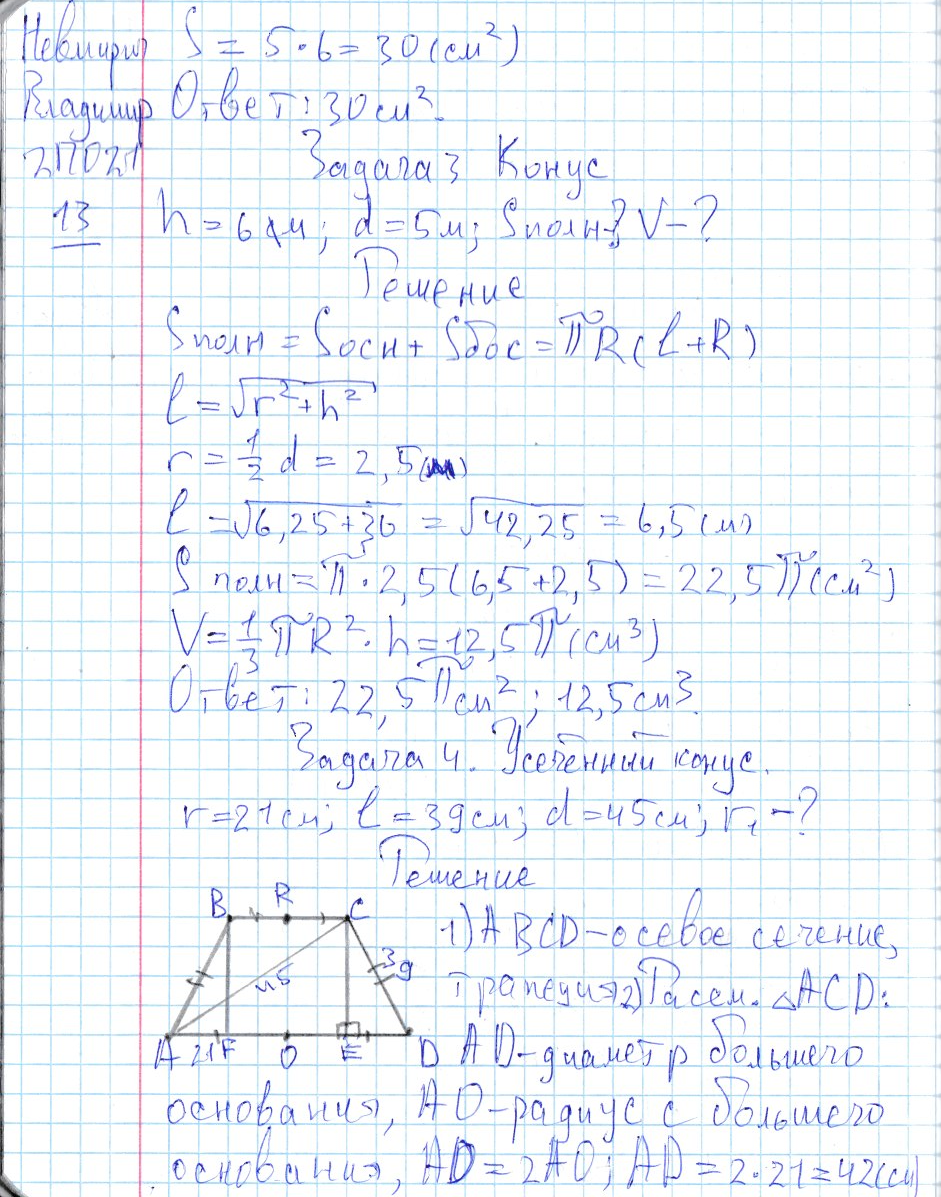 Невмирич S = 5·6 = 30 (см²)
Владимир Ответ: 30 см².
2П021 Задача 3 Конус
13 h = 6 см; d = 5м; Sполн-?; V-?
Решение
Sполн = Sосн + Sбос = πR(l+R)
l = √r²+h²
r = 1/2 d = 2,5(м)
l = √6,25+36 = √42,25 = 6,5(м)
Sполн = π·2,5(6,5+2,5) = 22,5π(см²)
V = 1/3 πR²·h = 12,5π(см³)
Ответ: 22,5π см²; 12,5см³.
Задача 4. Усечённый конус.
r = 21см; l = 39см; d = 45см; r₁ -?
Решение
B R C
1) ABCD - осевое сечение,
45 39
трапеция 2) Рассм. △ACD:
A 21 F O E D AD - диаметр большего
основания, AO - радиус с большего
основания, AD = 2AO; AD = 2·21 = 42(см)